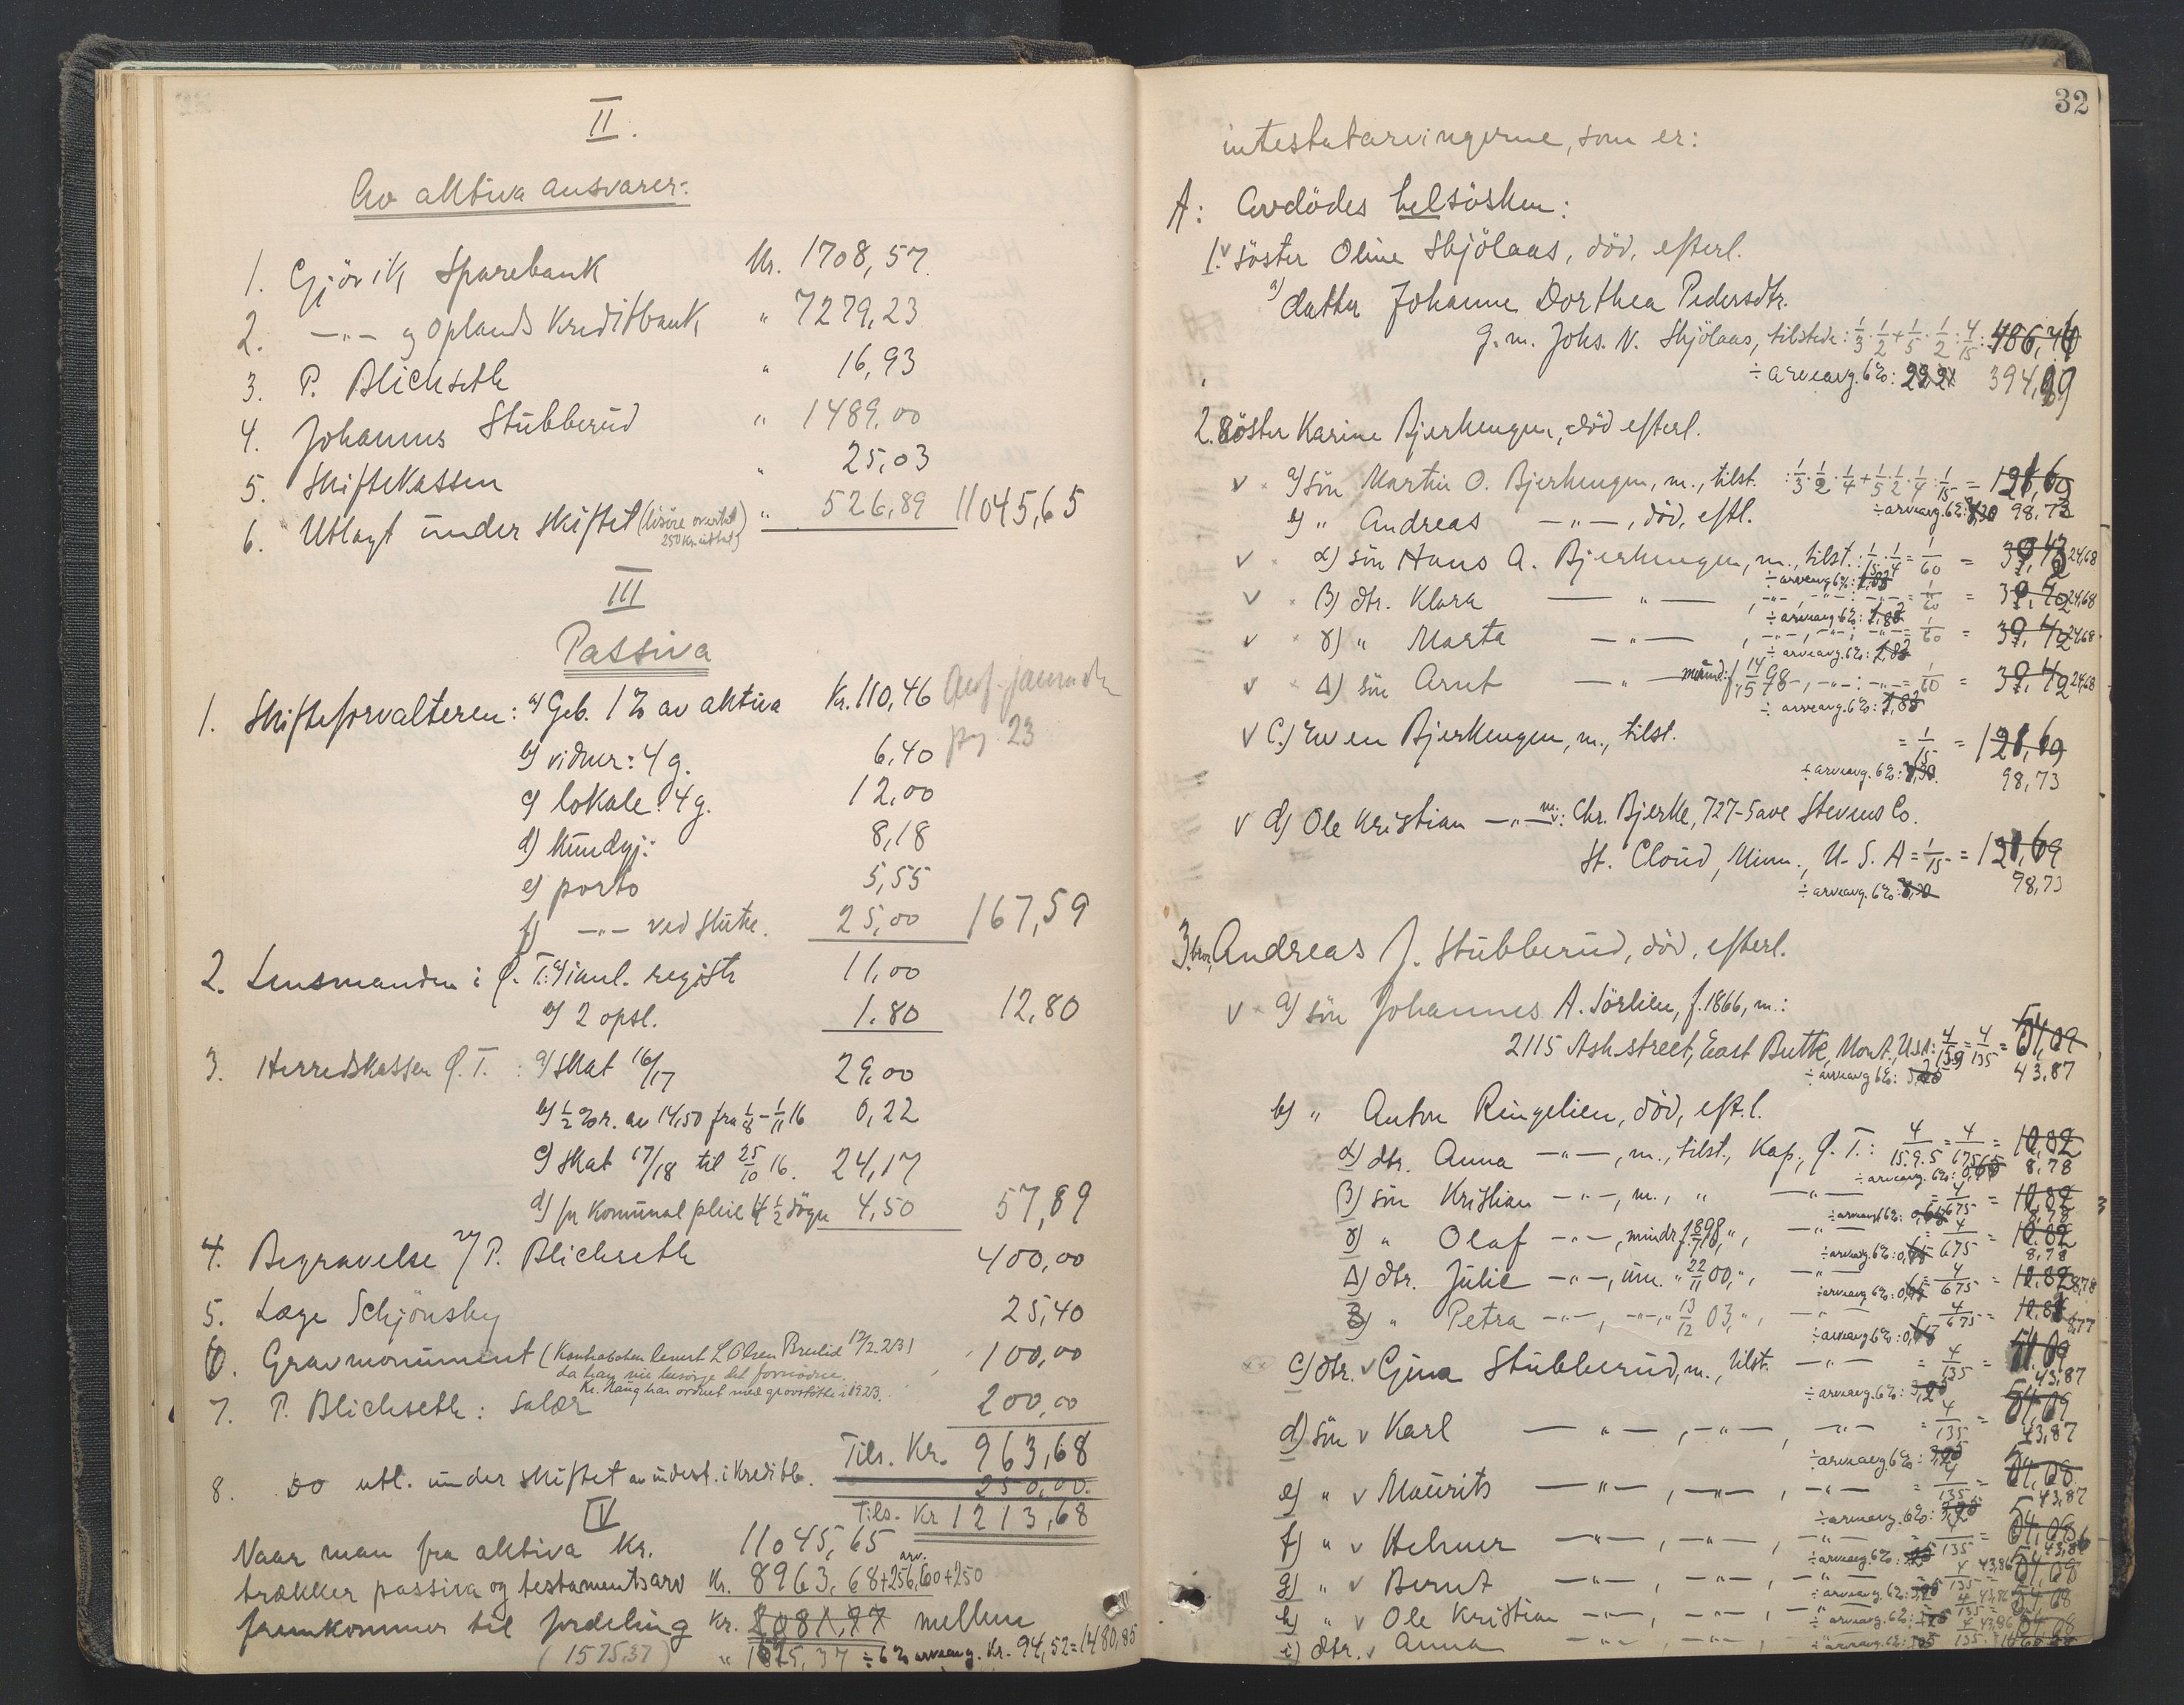 II.
Av aktiva ansvarer:
1. Gjövik Sparebank Kr. 1708,57.
2. —„— og Oplands Kreditbank „ 7279,23
3. P. Blichseth „ 16,93
4. Johannes Stubberud „ 1489,00
5. Skiftekassen „ 25,03
6. Utlagt under skiftet „ 526,89 11045,65
250 Kr.
III
Passiva
1. Skifteforvalteren: a) Geb. 1% av aktiva Kr. 110,46
b) vidner: 4 g. 6,40 pg. 23
c) lokale: 4 g. 12,00
d) kundgj: 8,18
e) porto 5,55
f) —„— ved slutn. 25,00 167,59
2. Lensmanden i Ø. T: a) registr 11,00
b) 2 opsl. 1.80 12,80
3. Herredskassen Ø. T. : a) Skat 16/17 29,00
b) ½ % r. av 14,50 fra 1/8 - 1/11 16 0,22
c) Skat 17/18 til 25/10 16. 24,17
d) for Komunal pleie 4½ dögn 4,50 57,89
4. Begravelse v/ P. Blichseth 400,00
5. Læge Schjönsby 25,40
6. Gravmonument (Kontraboken 100,00
da han vil besörge det fornödne.
Kr. Haug har ordnet med gravstötte i 1923.
7. P. Blichseth: Salær 200,00
Tils. Kr. 963,68
8. Do utl. under skiftet av indest. i Kreditb. 250,00.
Tils. Kr 1213,68
IV
Naar man fra aktiva Kr. 11045,65
trækker passiva og testamentsarv Kr. 8963,68+256,60+250
fremkommer til fordeling Kr. 2081,97 mellem
(1575,37) „ 1575,37 ÷ 6% arveavg. Kr. 94,52=1480,85
32
intestatarvingerne, som er:
A: Avdödes helsösken:
1. söster Oline Skjölaas, död, efterl.
a) datter Johanne Dorthea Pedersdtr.
g. m. Johs. N. Skjölaas, tilstede: 1/3·1/2+1/5·1/2: 4/15: 486,46
÷ arveavg. 6%: 394,89
2. Söster Karine Bjerkengen, död efterl.
v a) sön Martin O. Bjerkengen, m., tilst. : 1/3·1/2·1/4+1/5·1/2·1/4: 1/15 = 121,60
÷ arveavg. 6%: 98,73
b) „ Andreas —„—, död, eftl.
v α) sön Hans A. Bjerkengen, m., tilst.: 1/15·1/4 = 1/60 = 24,68
÷ arveavg. 6%:
v β) dtr. Klara —„—, —„—, —„—: —„— = 1/60 = 24,68
÷ arveavg. 6%:
v γ) „ Marte —„—, —„—, —„—: —„— = 1/60 = 24,68
÷ arveavg. 6%:
v Δ) sön Arnt —„— = 1/60 = 24,68
÷ arveavg. 6%:
v c.) Even Bjerkengen, m., tilst. = 1/15 = 121,60
÷ arveavg. 6%: 98,73
v d) Ole Kristian —„— m.: Chr. Bjerke, 727-5 ave Stevens Co.
St. Cloud, Minn., U. S. A = 1/15 = 121,69
÷ arveavg. 6%: 98,73
3. bror, Andreas J. Stubberud, död, efterl.
v a) sön Johannes A. Sörlien, f. 1866, m.:
2115 Ash street, East Butte, Mont., Usa: 4/15.9 = 4/135 = 54,09
÷ arveavg 6%: 43,87
b) „ Anton Ringelien, död, eft.l.
α) dtr. Anna —„—, m., tilst., Kap, Ø. T.: 4/15.9.5 = 4/675 = 10,82
÷ arveavg. 6%: 8,78
β) sön Kristian —„—, m., „ —„— = 4/675 = 10,82
÷ arveavg. 6%: 8,78
γ) „ Olaf —„—, mindr „, —„— = 4/675 = 10,82
÷ arveavg. 6%: 8,78
Δ) dtr. Julie —„—, um. „ 22/11 00, „, —„— = 4/675 = 10,82 8,78
÷ arveavg. 6%:
„ Petra —„—, —„—, „ 13/12 03, „, —„— 4/675 = 10,81 8,77
÷ arveavg. 6%:
c) dtr. v Gjina Stubberud, m., tilst. —„— = 4/135 = 54,09
÷ arveavg. 6%: 43,87
d) sön v Karl —„—, —„—, —„— = 4/135 = 54,09
÷ arveavg. 6%: 43,87
e) „ v Maurits —„—, —„—, —„— = 4/135 = 54,08
÷ arveavg. 6%: 43,87
f) „ v Helmer —„—, —„—, —„— = 4/135 = 54,08
÷ arveavg. 6%: 43,86
g) „ v Bernt —„—, —„—, —„— 4/135 = 43,86 54,08
÷ arveavg. 6%:
h) „ v Ole Kristian —„—, —„—, —„— 4/135 = 43,86 54,08
÷ arveavg. 6%:
i) dtr. v Anna —„—, —„—, —„— 4/135 43,86 54,08
÷ arveavg. 6%: